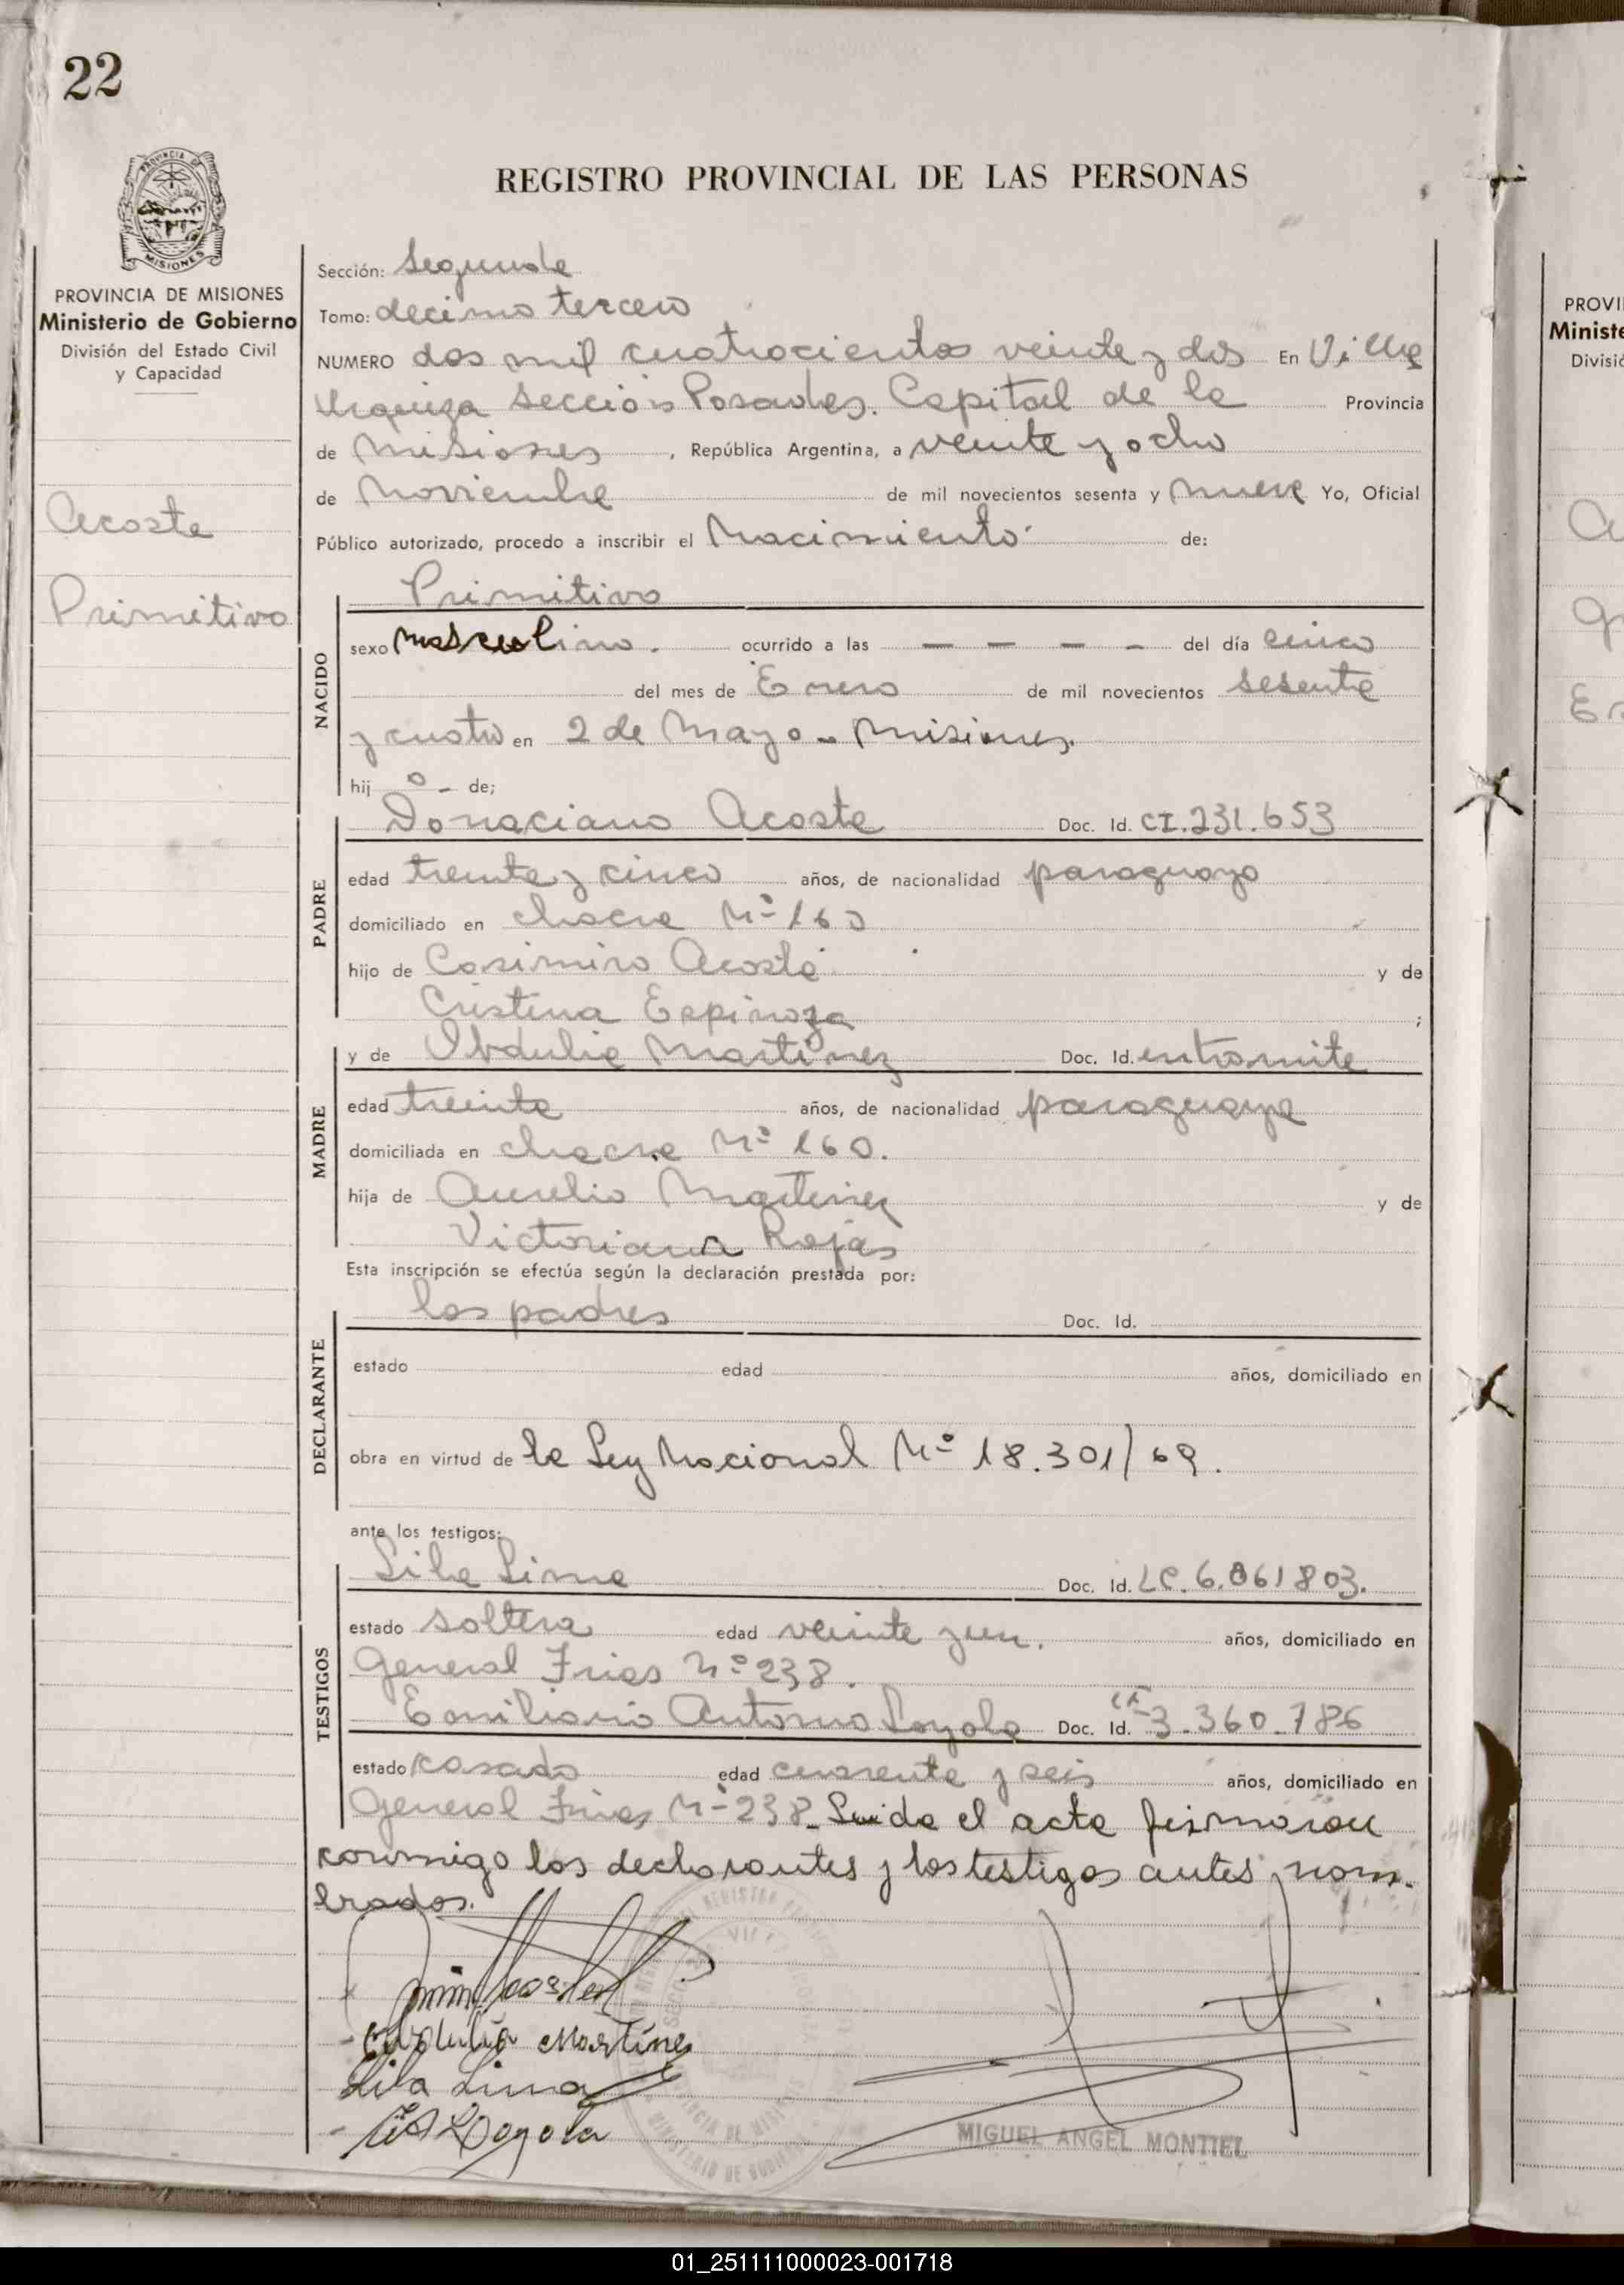 22
REGISTRO PROVINCIAL DE LAS PERSONAS
PROVINCIA DE MISIONES
Ministerio de Gobierno
División del Estado Civil
y Capacidad
Acosta
Primitivo
Sección: Segunda
Tomo: decimo tercero
NUMERO dos mil cuatrocientos veinte y dos En Villa
Urquiza Sección Posadas. Capital de la Provincia
de Misiones, República Argentina, a veinte y ocho
de Noviembre de mil novecientos sesenta y nueve Yo, Oficial
Público autorizado, procedo a inscribir el Nacimiento de:
Primitivo
NACIDO
sexo masculino. ocurrido a las — — — — del día cinco
del mes de Enero de mil novecientos sesenta
y cuatro en 2 de Mayo - Misiones.
hij o - de;
PADRE
Donaciano Acosta Doc. Id. CI.231.653
edad treinta y cinco años, de nacionalidad paraguayo
domiciliado en chacra Nº 160
hijo de Casimiro Acosta y de
Cristina Espinoza ;
MADRE
y de Obdulia Martinez Doc. Id. entramite
edad treinta años, de nacionalidad paraguaya
domiciliada en chacra Nº 160.
hija de Aurelio Martinez y de
Victoriana Rojas
Esta inscripción se efectúa según la declaración prestada por:
DECLARANTE
los padres Doc. Id.
estado edad años, domiciliado en
obra en virtud de la Ley Nacional Nº 18.301/69.
ante los testigos:
TESTIGOS
Lila Lima Doc. Id. LC.6.061803.
estado soltera edad veinte y un. años, domiciliado en
General Frias Nº 238.
Emiliano Antonio Loyola Doc. Id. 3.360.786
estado casado edad cuarenta y seis años, domiciliado en
General Frias Nº 238_ Leida el acta firmaron
conmigo los declarantes y los testigos antes nom-
brados.
Obdulia Martinez
Lila Lima
Loyola
MIGUEL ANGEL MONTIEL
PROVI
Ministe
Divisió
01_251111000023-001718